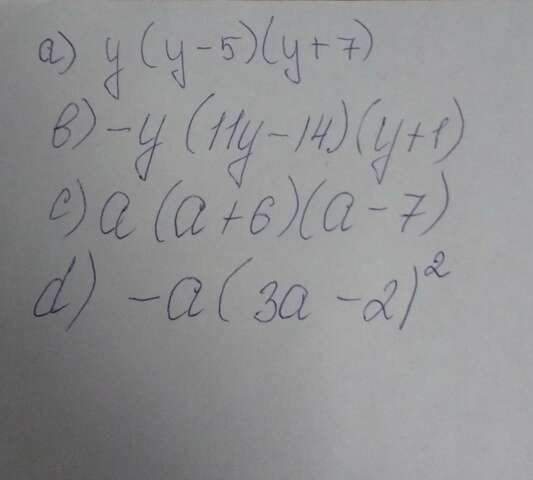 a) y (y-5)(y+7)
b) -y (11y-14)(y+1)
c) a (a+6)(a-7)
d) -a (3a-2)²